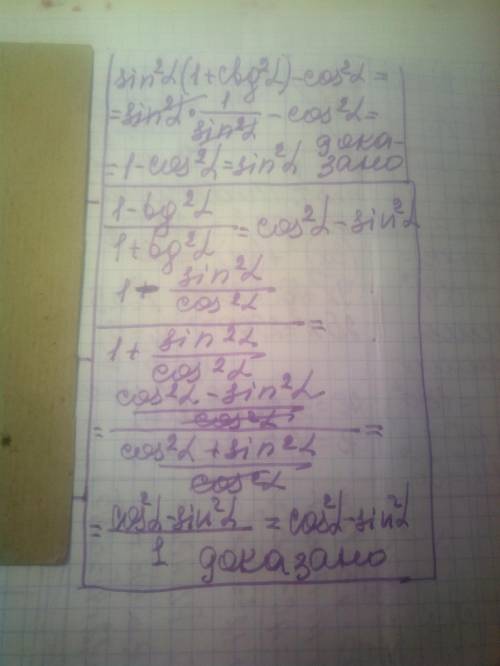 sin²α(1+ctg²α)-cos²α=
=sin²α·1/sin²α-cos²α=
=1-cos²α=sin²α дока-
зано
(1-tg²α)/(1+tg²α)=cos²α-sin²α
(1-sin²α/cos²α)/(1+sin²α/cos²α)=
=((cos²α-sin²α)/cos²α)/((cos²α+sin²α)/cos²α)=
=(cos²α-sin²α)/1=cos²α-sin²α
доказано